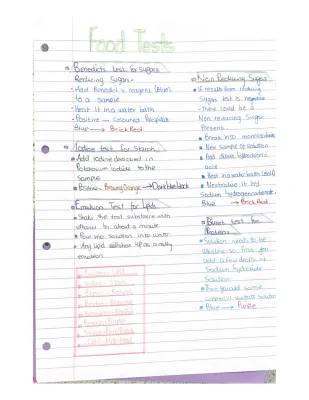 Food Tests
Benedict's test for Sugars
Reducing Sugar-
- Add Benedict's reagent (Blue)
to a sample
- Heat it in a water bath
- Positive - Coloured Precipitate
Blue → Brick Red
Iodine test for Starch
Add iodine dissolved in
Potassium iodide to the
Sample
Positive - Browny Orange → Dark blue black
Emulsion Test for Lipids
Shake the test substance with
ethanol for about a minute
Pour the solution into water
Any lipid will show up as a milky
emulsion
Non Reducing Sugars
If results from reducing
Sugar test is negative
- There could be a
Non reducing Sugar
Present
Break into monosaccharides
New sample of solution
Add dilute hydrochloric
acid
Heat in a water bath
Neutralise it by
Sodium hydrogencarbonate
Blue → Brick Red
Biuret test for
Proteins
Solution needs to be
alkaline so first you
add a few drops of
Sodium hydroxide
Solution
Then you add some
copper(II) sulfate solution
Blue → Purple